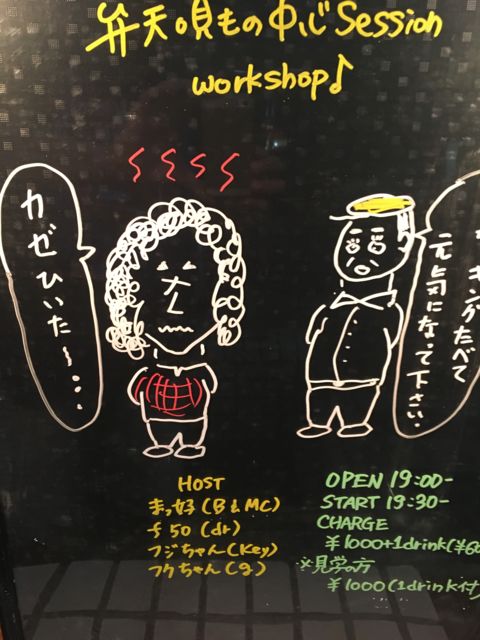 弁天唄もの中心Session
workshop♪
カゼひいた〜・・・
キングたべて
元気になって下さい.
HOST
まっ好(B&MC)
f50(dr)
フジちゃん(Key)
フケちゃん(g)
OPEN 19:00-
START 19:30-
CHARGE
¥1000+1drink(¥60
※見学の方
¥1000(1drink付